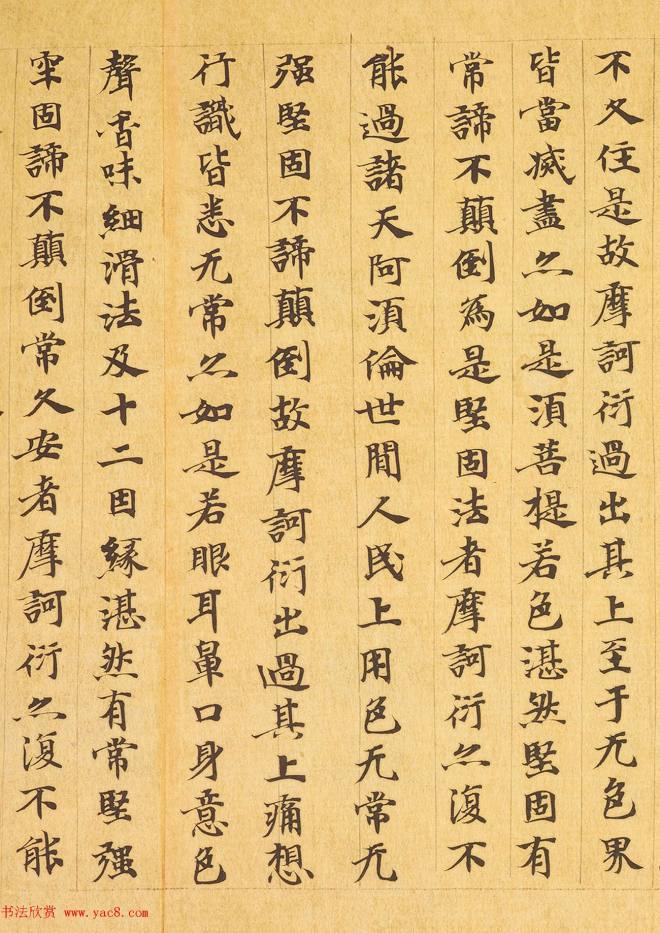 不久住是故摩訶衍過出其上至于无色界
皆當烕盡亦如是湏菩提若色湛然堅固有
常諦不顛倒為是堅固法者摩訶衍亦復不
能過諸天阿湏倫世間人民上用色无常无
强堅固不諦顛倒故摩訶衍出過其上痛想
行識皆悉无常亦如是若眼耳鼻口身意色
聲香味細滑法及十二因緣湛然有常堅强
牢固諦不顛倒常久安者摩訶衍亦復不能
书法欣赏 www.yac8.com